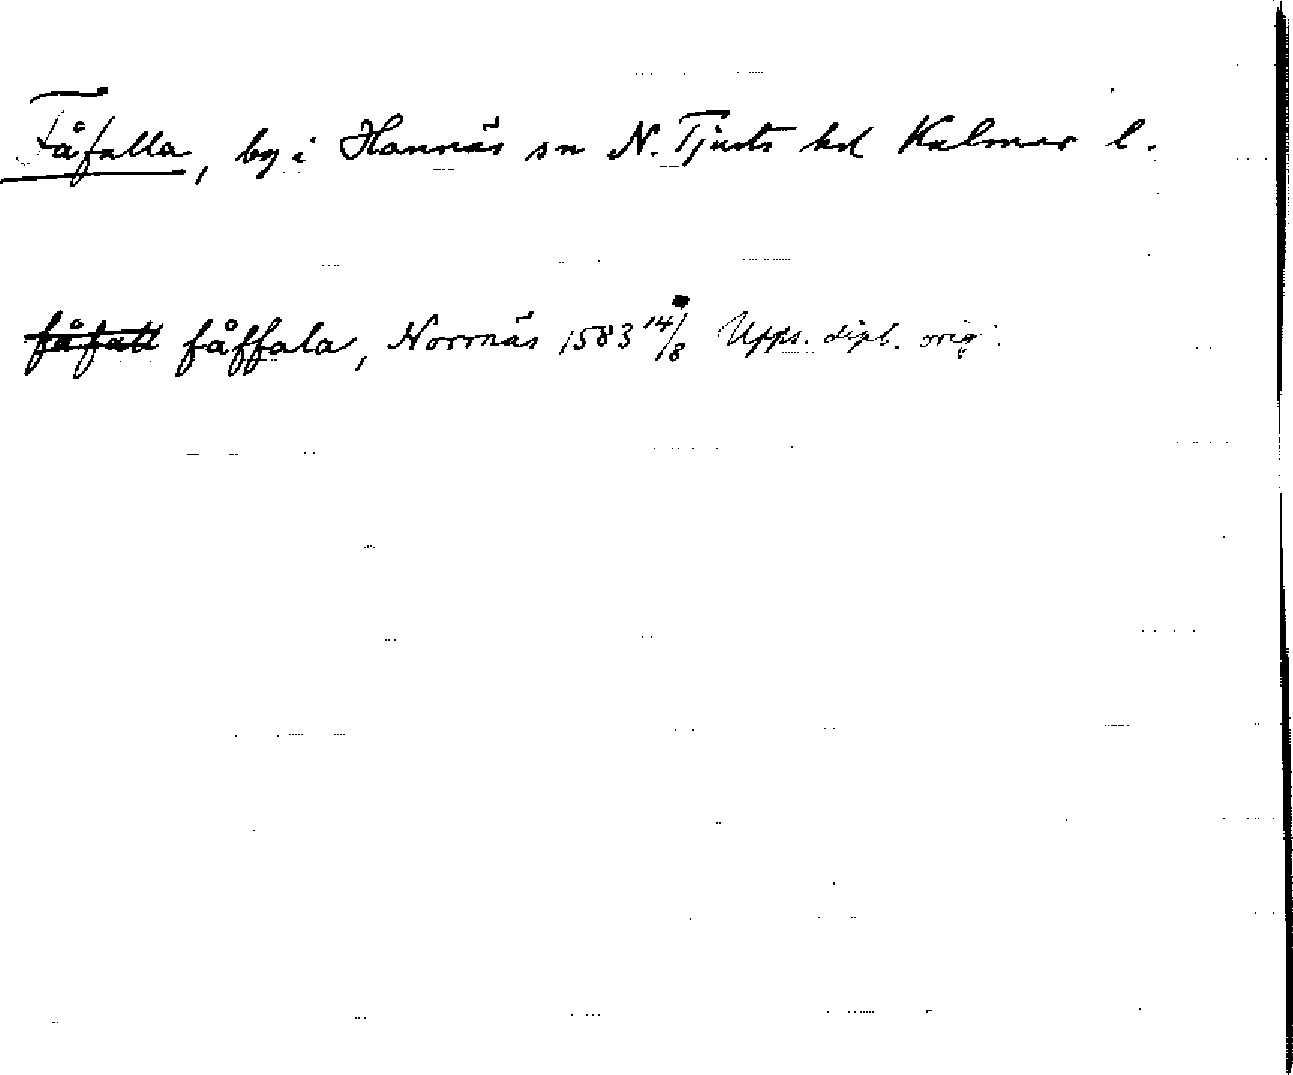 Fåfalla, by i Hannäs sn N. Tjusts hd Kalmar l.
fåfall fåffala, Norrnäs 1583 14/8 Upps. dipl. orig.